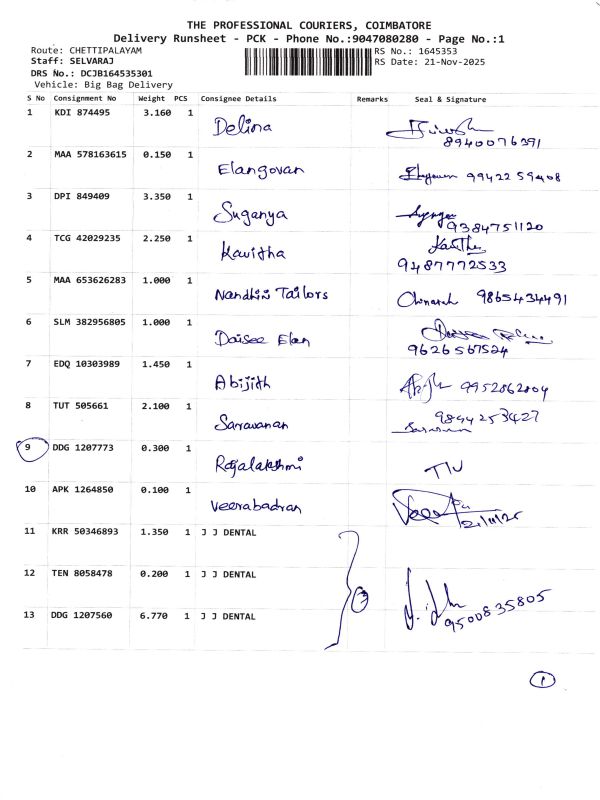 THE PROFESSIONAL COURIERS, COIMBATORE
Delivery Runsheet - PCK - Phone No.:9047080280 - Page No.:1
Route: CHETTIPALAYAM RS No.: 1645353
Staff: SELVARAJ RS Date: 21-Nov-2025
DRS No.: DCJB164535301
Vehicle: Big Bag Delivery
S No Consignment No Weight PCS Consignee Details Remarks Seal & Signature
1 KDI 874495 3.160 1 Delina
8940076391
2 MAA 578163615 0.150 1 Elangovan 9942259408
3 DPI 849409 3.350 1 Suganya
9384751120
4 TCG 42029235 2.250 1 Kavitha
9487772533
5 MAA 653626283 1.000 1 Nandhini Tailors 9865434491
6 SLM 382956805 1.000 1 Daisee Elan
9626567524
7 EDQ 10303989 1.450 1 Abijith 9952862804
8 TUT 505661 2.100 1 Saravanan 9894253427
9 DDG 1207773 0.300 1 Rajalakshmi
10 APK 1264850 0.100 1 Veerabadran
21/11/25
11 KRR 50346893 1.350 1 J J DENTAL
12 TEN 8058478 0.200 1 J J DENTAL 3
13 DDG 1207560 6.770 1 J J DENTAL 9500835805
1